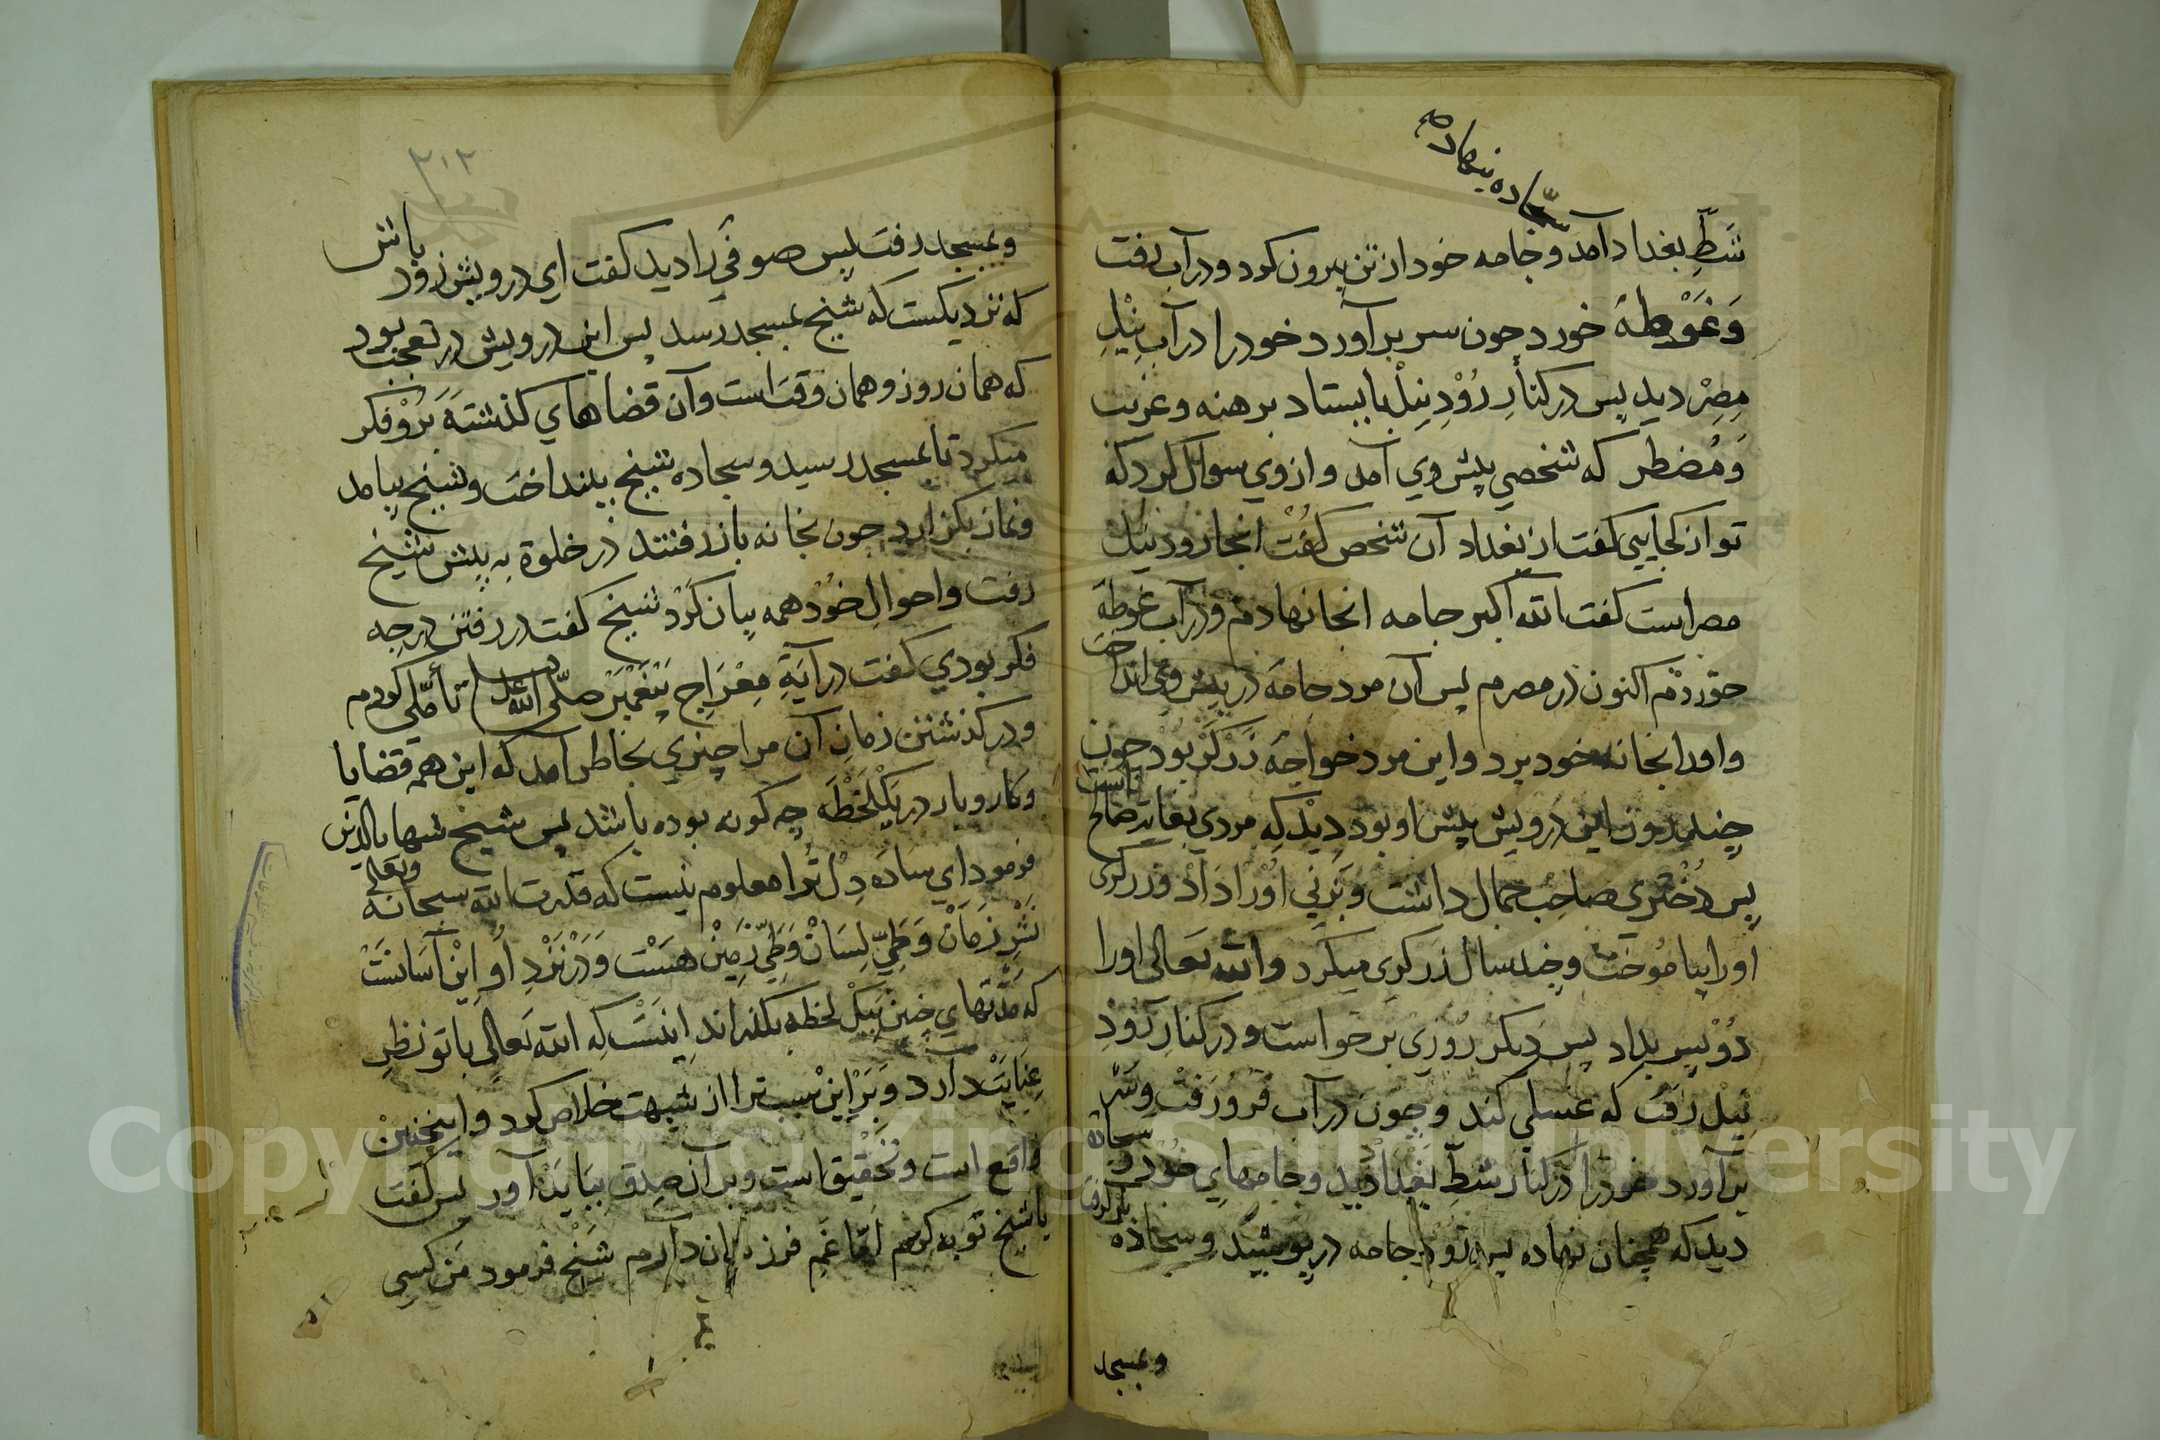 سجاده بنهاد
شَطِّ بغداد آمد و جامه خود از تن بیرون کرد و در آب رفت
وَغَوْطهٔ خورد جون سر برآورد خود را در آبِ نِیْلِ
مِصْر دید پس در کنارِ رُوْدِ نِیْل بایستاد برهنه و غریب
وَمُضطر که شخصی پیش وی آمد و از وی سوال کرد که
تو از کجایی کفت از بغداد آن شخص کفت اینجا رود نیل
مصر است کفت الله اکبر جامه انجا نهادم و در آب غوطهٔ
خوردم اکنون در مصرم پس آن مرد جامهٔ در پیش وی انداخت
و اورا بخانه خود برد و این مرد خواجهٔ زرکر بود جون
جند روز این درویش پیش او بود دید که مردی بغایت صالح است
پس دختری صاحب جمال داشت و بزنی اورا داد و زرکری
اورا بیاموخت و جند سال زرکری میکرد والله تعالی اورا
دو پسر بداد پس دیکر روزی برخواست و در کنار رود
نیل رفت که غسلی کند و جون در آب فرو رفت و سر
برآورد خود را در کنار شط بغداد دید و جامهای خود
سجاده
دید که همچنان نهاده پس زود جامه در پوشید و سجاده
برکرفت
وبمسجد
٢١٢
وبمسجد رفت پس صوفی را دید کفت ای درویش زود باش
که نزدیکست که شیخ بمسجد رسد پس این درویش در تعجب بود
که همان روز و همان وقت است و آن قضاهای کذشته بَرُو فکر
میکرد تا بمسجد رسید و سجاده شیخ بینداخت و شیخ بیامد
و نماز بکزارد جون بخانه باز رفتند در خلوة به پیش شیخ
رفت و احوالِ خود همه بیان کرد شیخ کفت در رفتن در جه
فکر بودی کفت در آیَةِ مِعْرَاجِ پیغمبر صلّی الله تأمّلی کردم
و در کذشتن زمانِ آن مرا چیزی بخاطر آمد که این همه قضایا
و کار و بار در یک لحظه چه کونه بوده باشد پس شیخ شهاب الدین
فرمود ای ساده دل ترا معلوم نیست که قدرت الله سبحانه وتعالی
نَشْرِ زمان وَطَیِّ لِسَان وَطَیِّ زَمِیْن هست وَدَرْ نَزْدِ اُو اِیْن آسانست
که مدتهای چنین بیک لحظه بکذراند اینست که الله تعالی با تو نظرِ
عنایت دارد و بر این سبب ترا از شبهت خلاص کرد و اینچنین
واقع است و تحقیق است و بر آن صدق بباید آورد پس کفت
یا شیخ توبه کردم اما غم فرزندان دارم شیخ فرمود من کسی